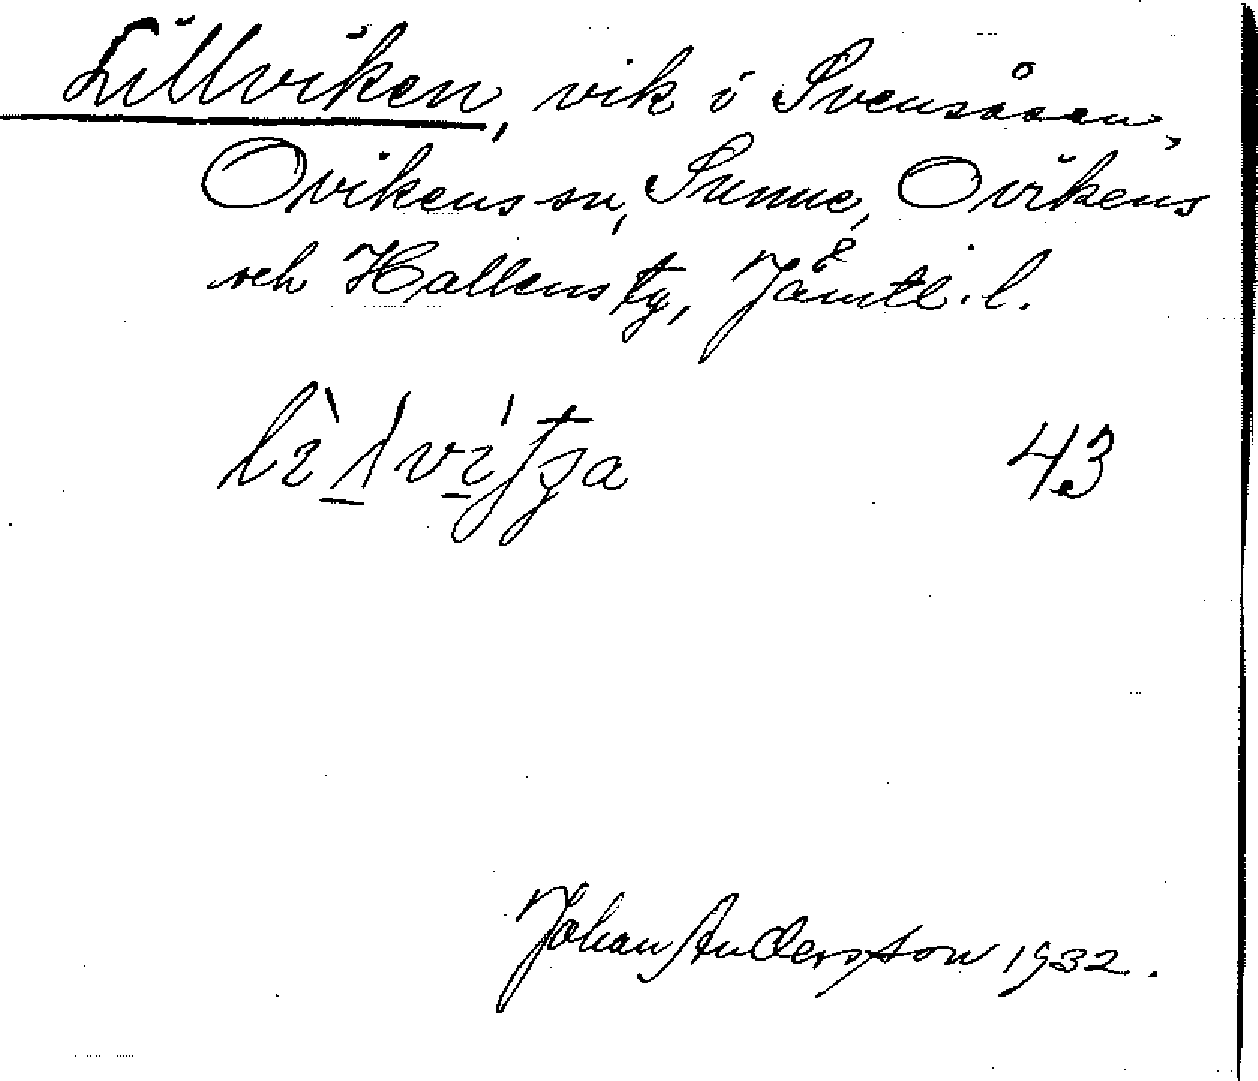 Lillviken, vik i Svensåsen,
Ovikens sn, Sunne, Ovikens
och Hallens tg, Jämtl. l.
43
Johan Andersson 1932.